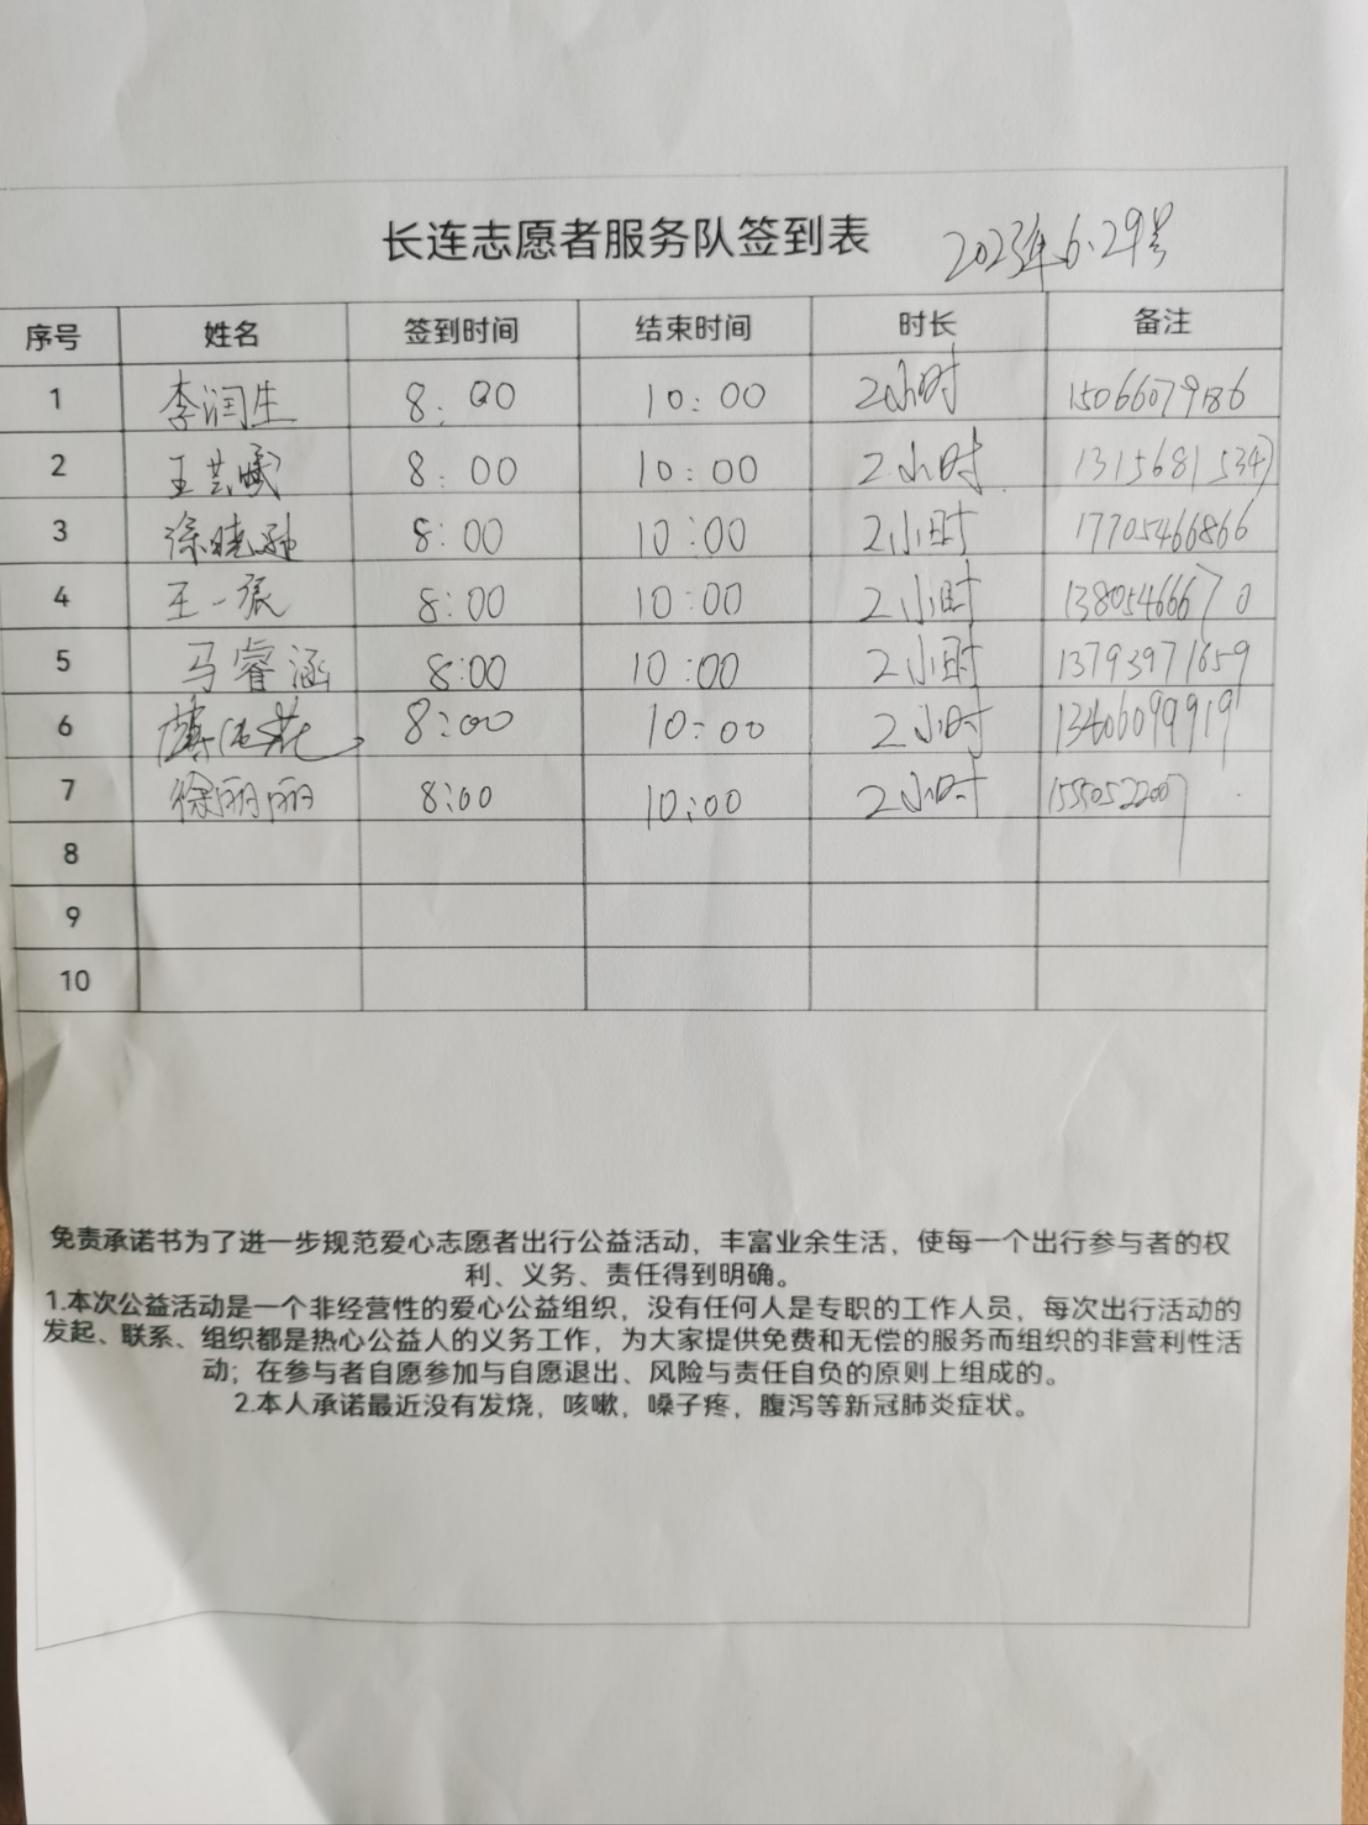 长连志愿者服务队签到表 2023年6.29号
序号 姓名 签到时间 结束时间 时长 备注
1 李润生 8:00 10:00 2小时 15066079186
2 王芸 8:00 10:00 2小时 13156815347
3 徐晓 8:00 10:00 2小时 17705466866
4 王一张 8:00 10:00 2小时 13805466670
5 马睿涵 8:00 10:00 2小时 13793971659
6 8:00 10:00 2小时 13406099919
7 徐丽丽 8:00 10:00 2小时 15550522007
8
9
10
免责承诺书为了进一步规范爱心志愿者出行公益活动，丰富业余生活，使每一个出行参与者的权
利、义务、责任得到明确。
1.本次公益活动是一个非经营性的爱心公益组织，没有任何人是专职的工作人员，每次出行活动的
发起、联系、组织都是热心公益人的义务工作，为大家提供免费和无偿的服务而组织的非营利性活
动；在参与者自愿参加与自愿退出、风险与责任自负的原则上组成的。
2.本人承诺最近没有发烧，咳嗽，嗓子疼，腹泻等新冠肺炎症状。